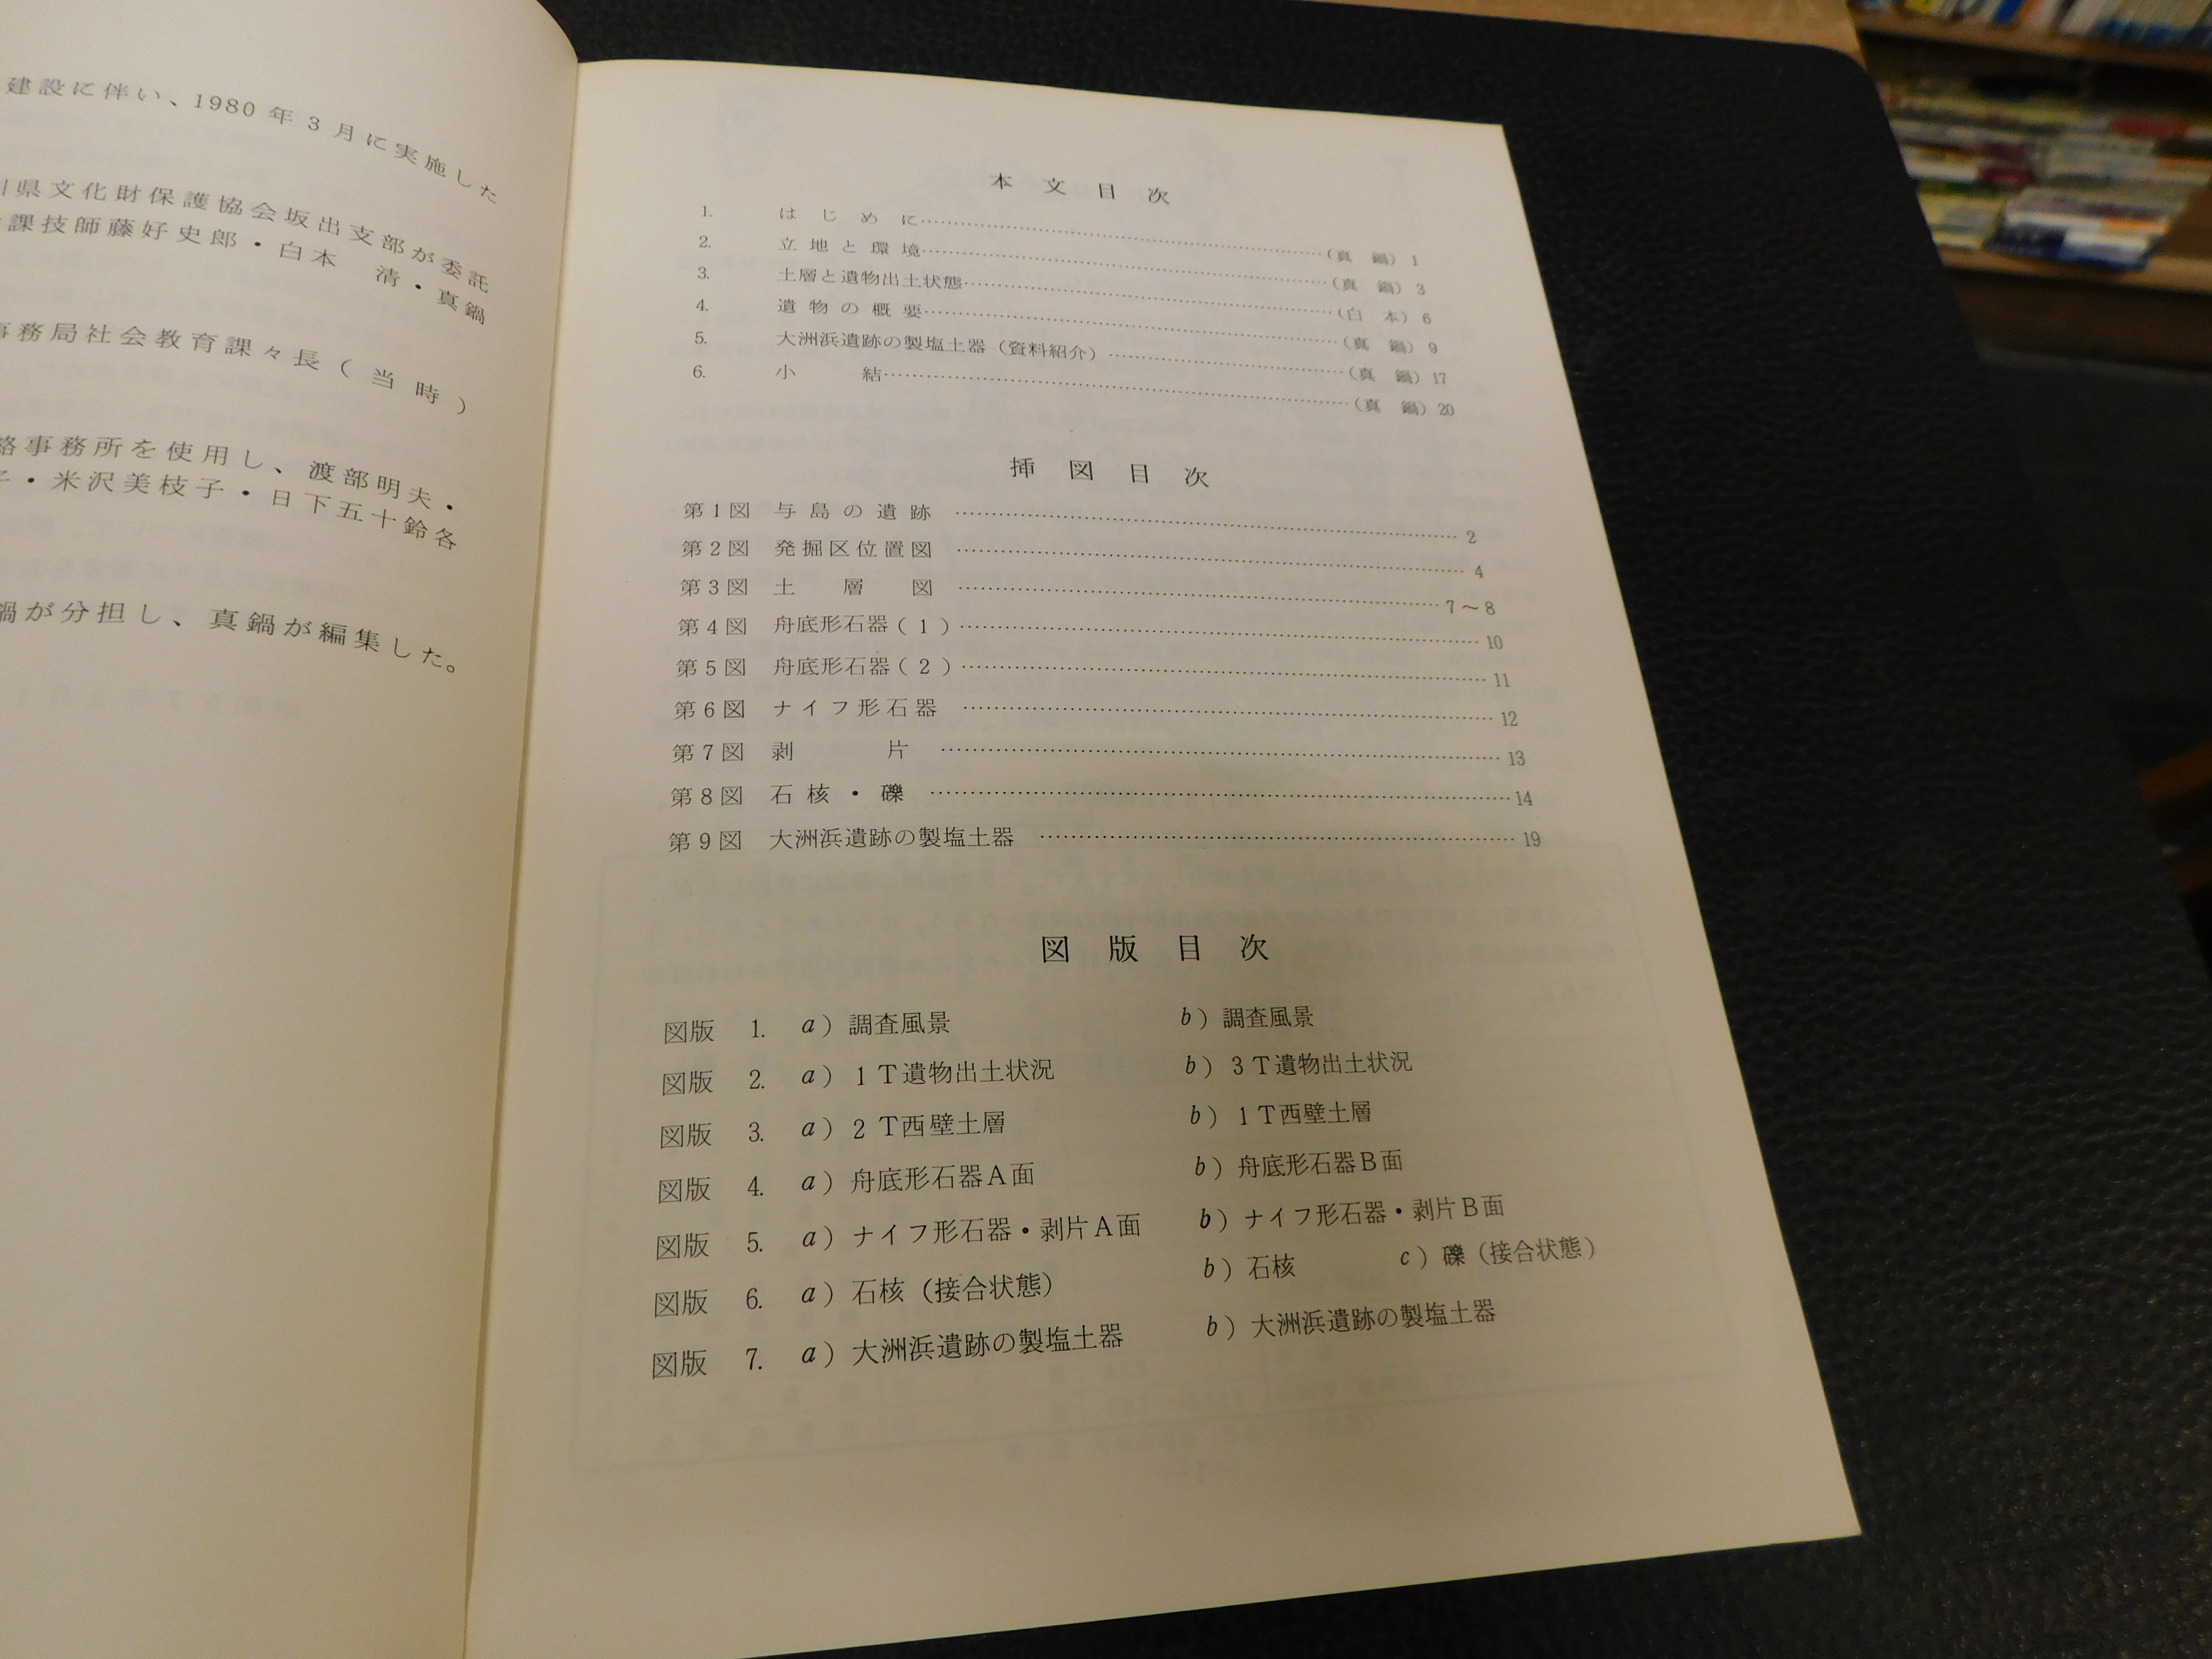 建設に伴い、1980年3月に実施した
川県文化財保護協会坂出支部が委託
課技師藤好史郎・白本　清・真鍋
事務局社会教育課々長(当時)
事務所を使用し、渡部明夫・
子・米沢美枝子・日下五十鈴各
鍋が分担し、真鍋が編集した。
本文目次
1. はじめに……………………(真鍋) 1
2. 立地と環境……………………(真鍋) 3
3. 土層と遺物出土状態……………………(白本) 6
4. 遺物の概要……………………(真鍋) 9
5. 大洲浜遺跡の製塩土器(資料紹介)……………………(真鍋) 17
6. 小結……………………(真鍋) 20
挿図目次
第1図 与島の遺跡 …………………… 2
第2図 発掘区位置図 …………………… 4
第3図 土層図 …………………… 7～8
第4図 舟底形石器(1)…………………… 10
第5図 舟底形石器(2)…………………… 11
第6図 ナイフ形石器 …………………… 12
第7図 剥片 …………………… 13
第8図 石核・礫 …………………… 14
第9図 大洲浜遺跡の製塩土器 …………………… 19
図版目次
図版 1. a)調査風景 b)調査風景
図版 2. a)1T遺物出土状況 b)3T遺物出土状況
図版 3. a)2T西壁土層 b)1T西壁土層
図版 4. a)舟底形石器A面 b)舟底形石器B面
図版 5. a)ナイフ形石器・剥片A面 b)ナイフ形石器・剥片B面
図版 6. a)石核(接合状態) b)石核 c)礫(接合状態)
図版 7. a)大洲浜遺跡の製塩土器 b)大洲浜遺跡の製塩土器